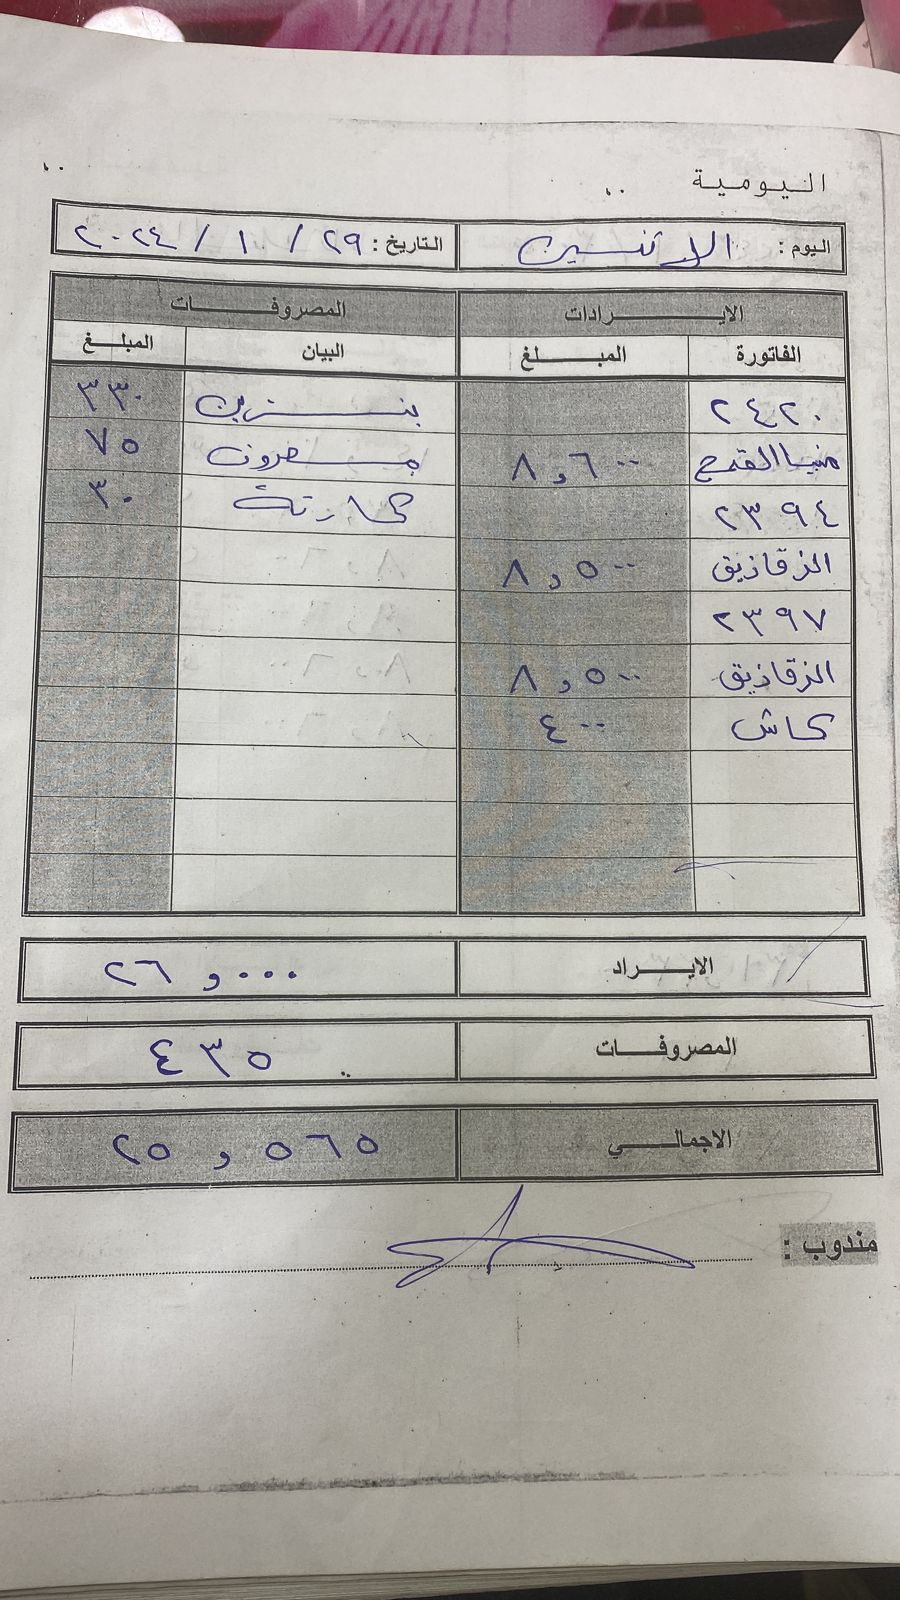 اليومية
اليوم : الاتنسين التاريخ : ٢٩ / ١ / ٢٠٢٤
الايرادات المصروفات
الفاتورة المبلغ البيان المبلغ
٢٤٢٠ بنزين ٣٣٠
منيا القمح ٨,٦٠٠ مصروف ٧٥
٢٣٩٤ كارتة ٣٠
الزقازيق ٨,٥٠٠
٢٣٩٧
الزقازيق ٨,٥٠٠
كاش ٤٠٠
الايراد ٢٦,٠٠٠
المصروفات ٤٣٥
الاجمالي ٢٥,٥٦٥
مندوب :